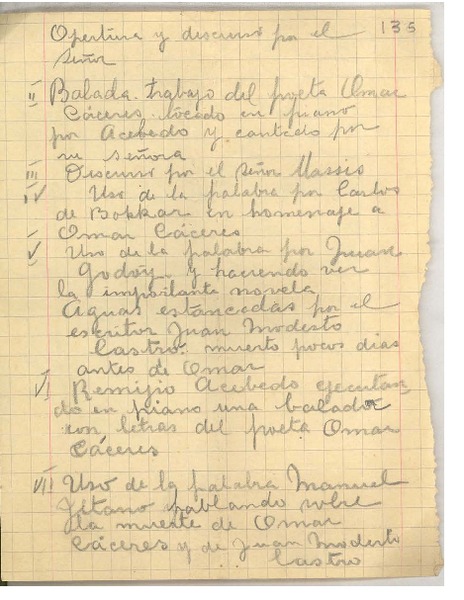 135
Opertura y discurso por el
señor
II Balada. trabajo del poeta Omar
Cáceres. tocado en piano
por Acebedo y cantado por
su señora
III Discurso por el señor Massis
IV Uso de la palabra por Carlos
de Bokkar en homenaje a
Omar Cáceres
V Uso de la palabra por Juan
Godoy y haciendo ver
la importante novela
Aguas estancadas por el
escritor Juan Modesto
Castro. muerto pocos dias
antes de Omar
VI Remijio Acebedo ejecutan
do en piano una balada
con letras del poeta Omar
Cáceres
VII Uso de la palabra Manuel
Jitano hablando sobre
la muerte de Omar
Cáceres y de Juan Modesto
Castro